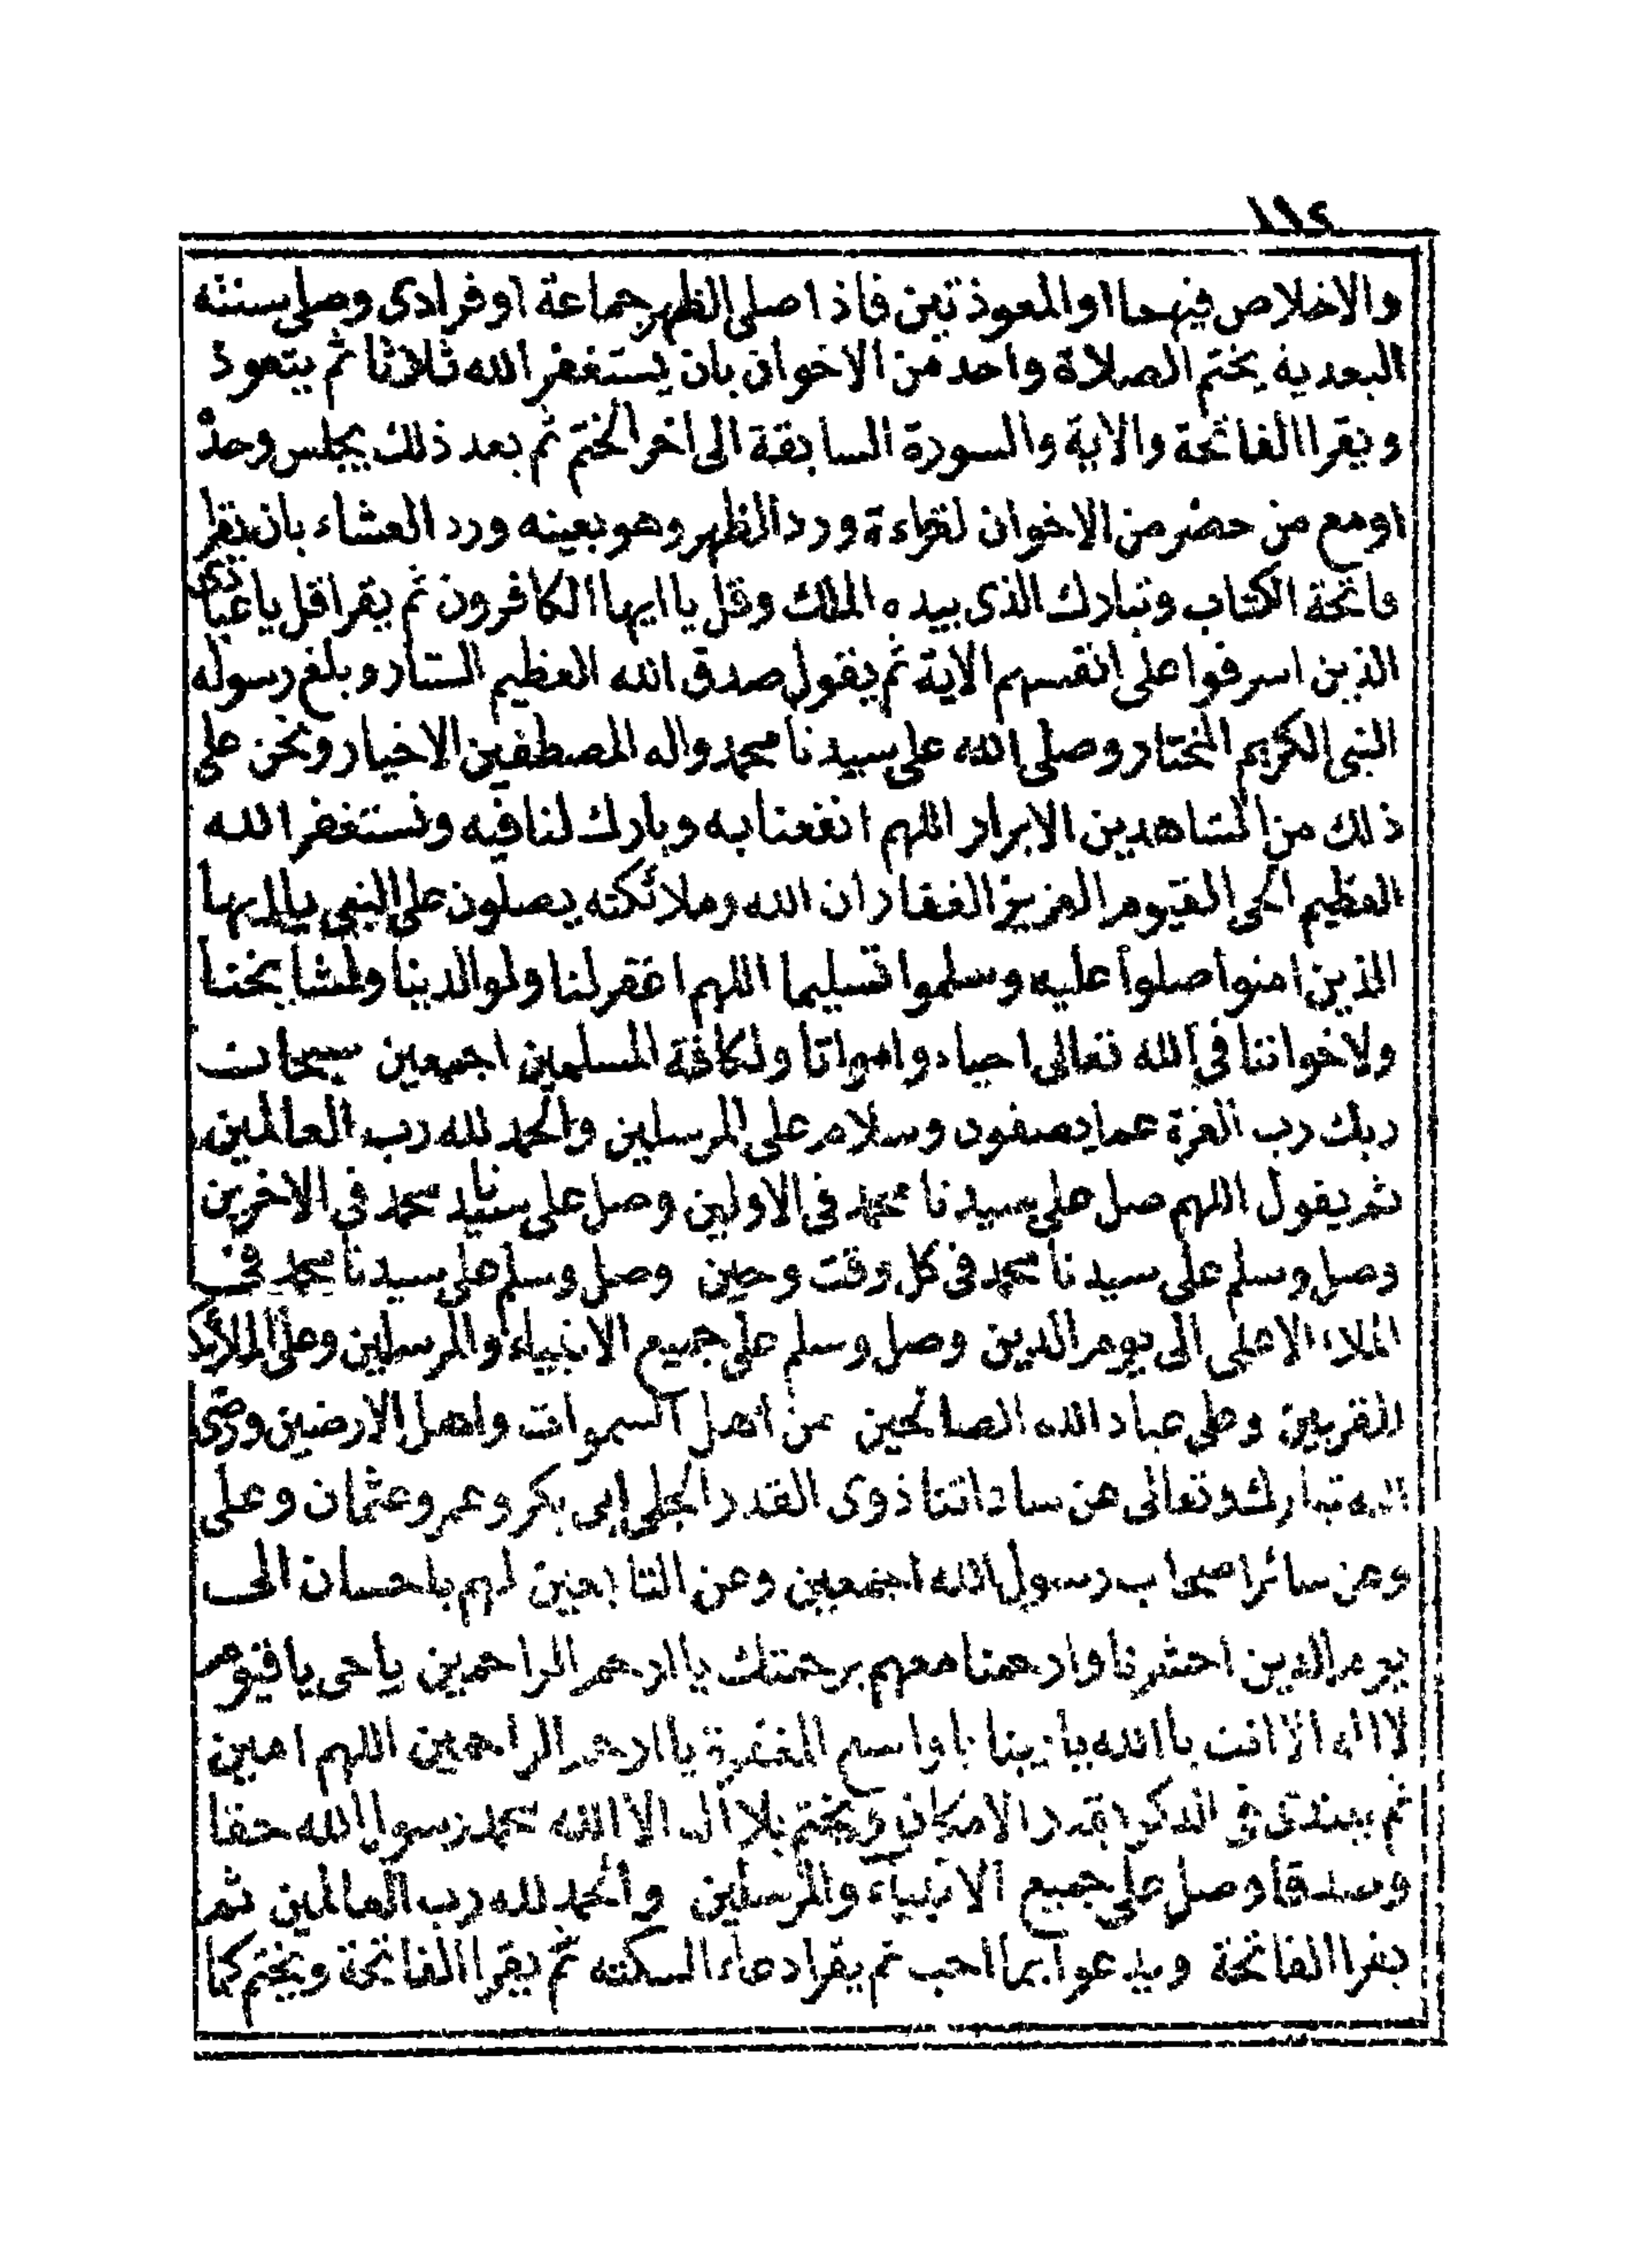 ١١٤
والاخلاص فيهما او المعوذتين فاذا صلى الظهر جماعة او فرادى وصلى سنته
البعدية يختم الصلاة واحد من الاخوان بان يستغفر الله ثلاثا ثم يتعوذ
ويقرا الفاتحة والاية والسورة السابقة الى اخر الختم ثم بعد ذلك يجلس وحده
او مع من حضر من الاخوان لقراءة ورد الظهر وهو بعينه ورد العشاء بان يقرا
فاتحة الكتاب وتبارك الذى بيده الملك وقل يا ايها الكافرون ثم يقرا قل يا عبادى
الذين اسرفوا على انفسهم الاية ثم يقول صدق الله العظيم الستار وبلغ رسوله
النبى الكريم المختار وصلى الله على سيدنا محمد واله المصطفين الاخيار ونحن على
ذلك من الشاهدين الابرار اللهم انفعنا به وبارك لنا فيه ونستغفر الله
العظيم الحى القيوم العزيز الغفار ان الله وملائكته يصلون على النبى يا ايها
الذين امنوا صلوا عليه وسلموا تسليما اللهم اغفر لنا ولوالدينا ولمشايخنا
ولاخواننا فى الله تعالى احياء وامواتا ولكافة المسلمين اجمعين سبحان
ربك رب العزة عما يصفون وسلام على المرسلين والحمد لله رب العالمين
ثم يقول اللهم صل على سيدنا محمد فى الاولين وصل على سيدنا محمد فى الاخرين
وصل وسلم على سيدنا محمد فى كل وقت وحين وصل وسلم على سيدنا محمد فى
الملاء الاعلى الى يوم الدين وصل وسلم على جميع الانبياء والمرسلين وعلى الملائكة
المقربين وعلى عباد الله الصالحين من اهل السموات واهل الارضين ورضى
الله تبارك وتعالى عن ساداتنا ذوى القدر الجلى ابى بكر وعمر وعثمان وعلى
وعن سائر اصحاب رسول الله اجمعين وعن التابعين لهم باحسان الى
يوم الدين احشرنا وارحمنا معهم برحمتك يا ارحم الراحمين يا حى يا قيوم
لا اله الا انت يا الله يا ربنا يا واسع المغفرة يا ارحم الراحمين اللهم امين
ثم يبتدى فى الذكر بقدر الامكان ويختم بلا اله الا الله محمد رسول الله حقا
وصدقا وصل على جميع الانبياء والمرسلين والحمد لله رب العالمين ثم
يقرا الفاتحة ويدعوا بما احب ثم يقرا دعاء السكته ثم يقرا الفاتحة ويختم كما